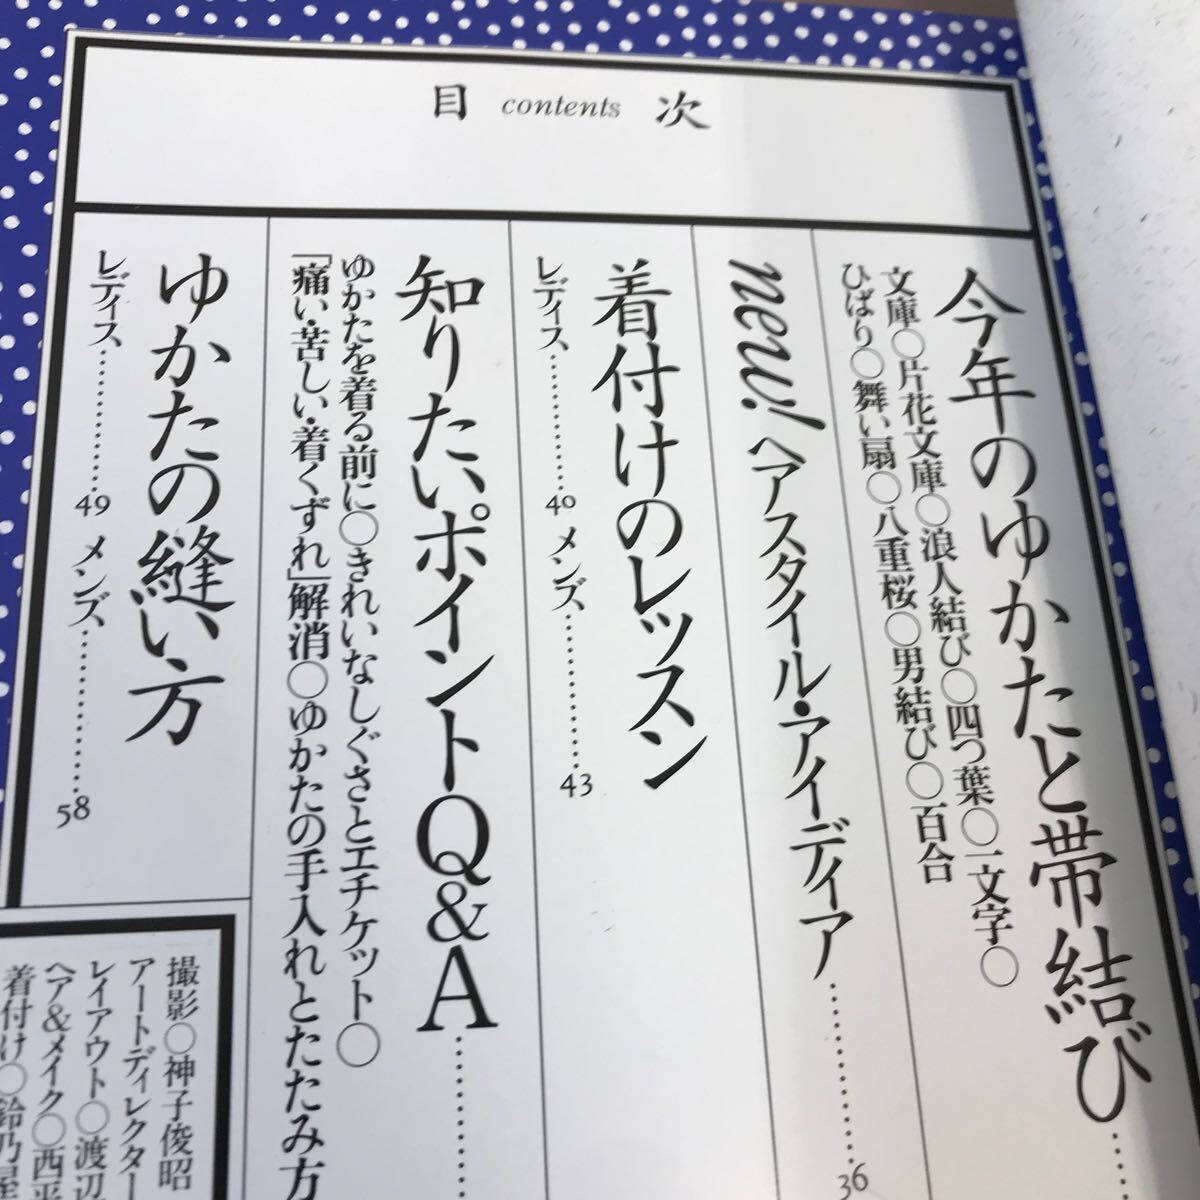 目 contents 次
今年のゆかたと帯結び……
文庫○片花文庫○浪人結び○四つ葉○一文字○
ひばり○舞い扇○八重桜○男結び○百合
new! ヘアスタイル・アイディア……36
着付けのレッスン
レディス……40 メンズ……43
知りたいポイントQ&A……
ゆかたを着る前に○きれいなしぐさとエチケット○
「痛い・苦しい・着くずれ」解消○ゆかたの手入れとたたみ方
ゆかたの縫い方
レディス……49 メンズ……58
撮影○神子俊昭
アートディレクター
レイアウト○渡辺
ヘア&メイク○西平
着付け○鈴乃屋